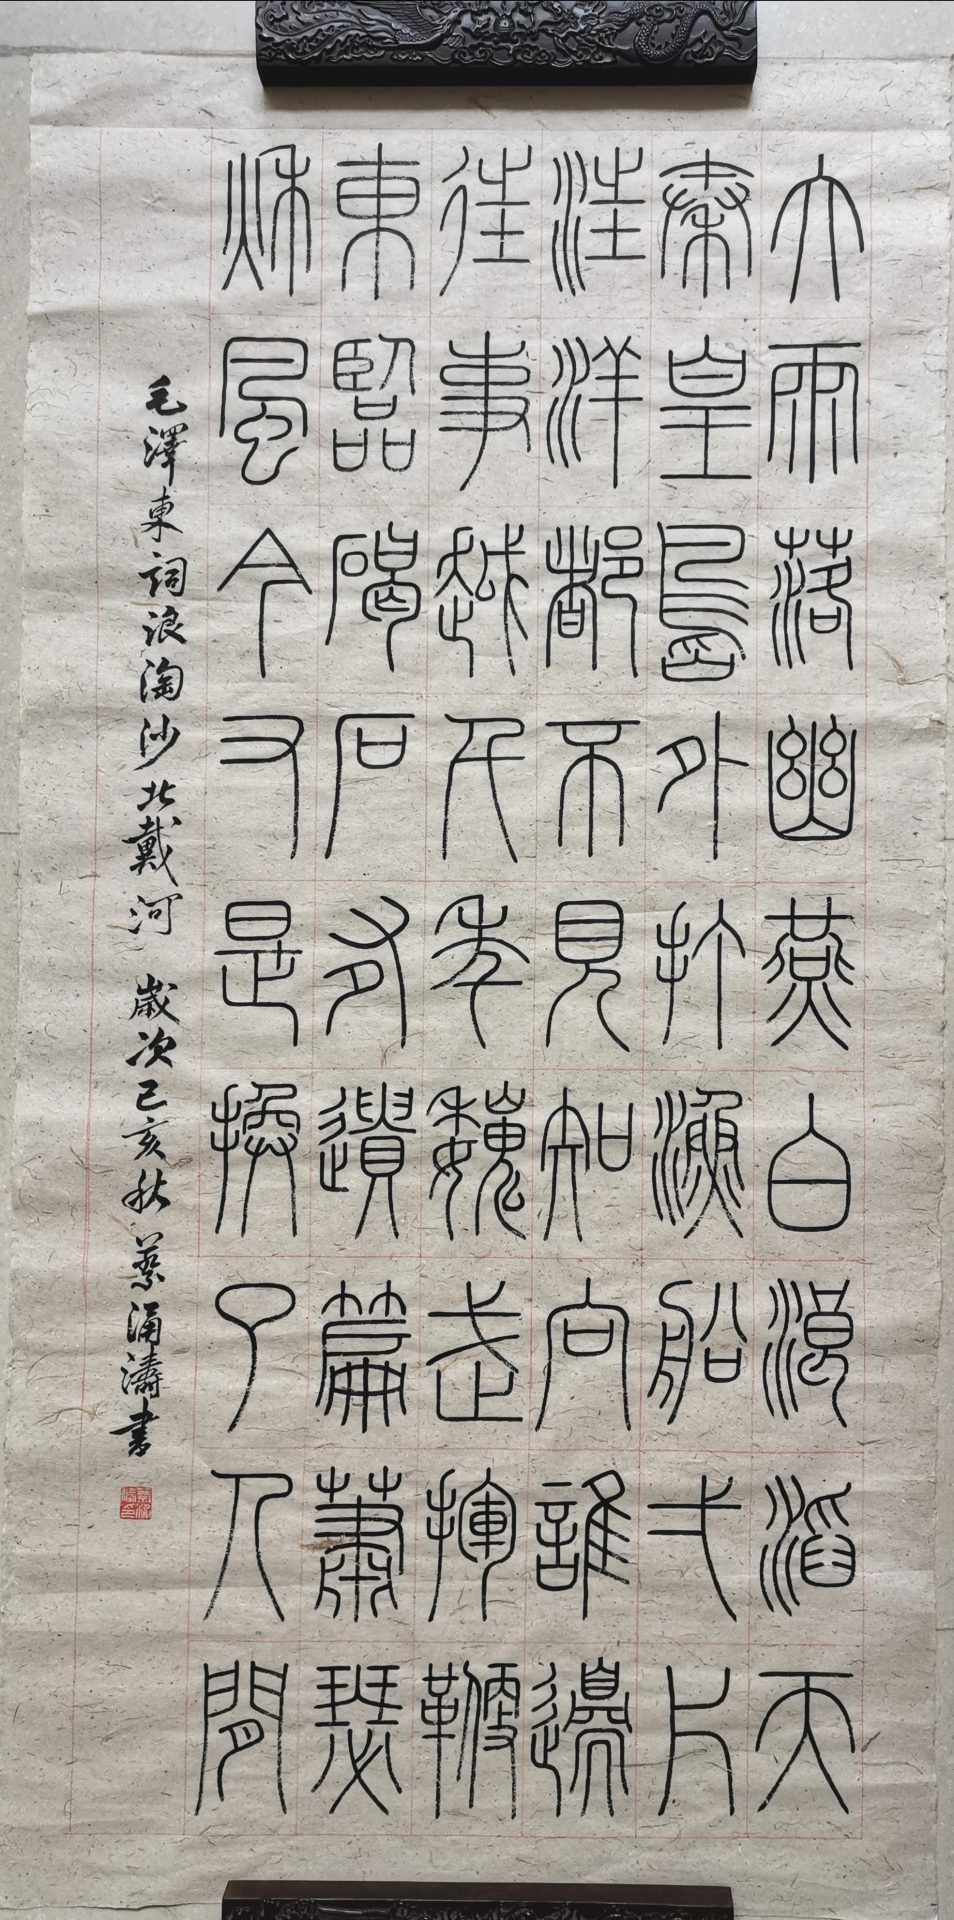 大雨落幽燕白浪滔天
秦皇島外打漁船弌片
汪洋都不見知向誰邊
往事越千年魏武揮鞭
東臨碣石有遺篇蕭瑟
秋風今又是換了人間
毛澤東詞浪淘沙北戴河 歲次己亥秋 蔡涌濤書